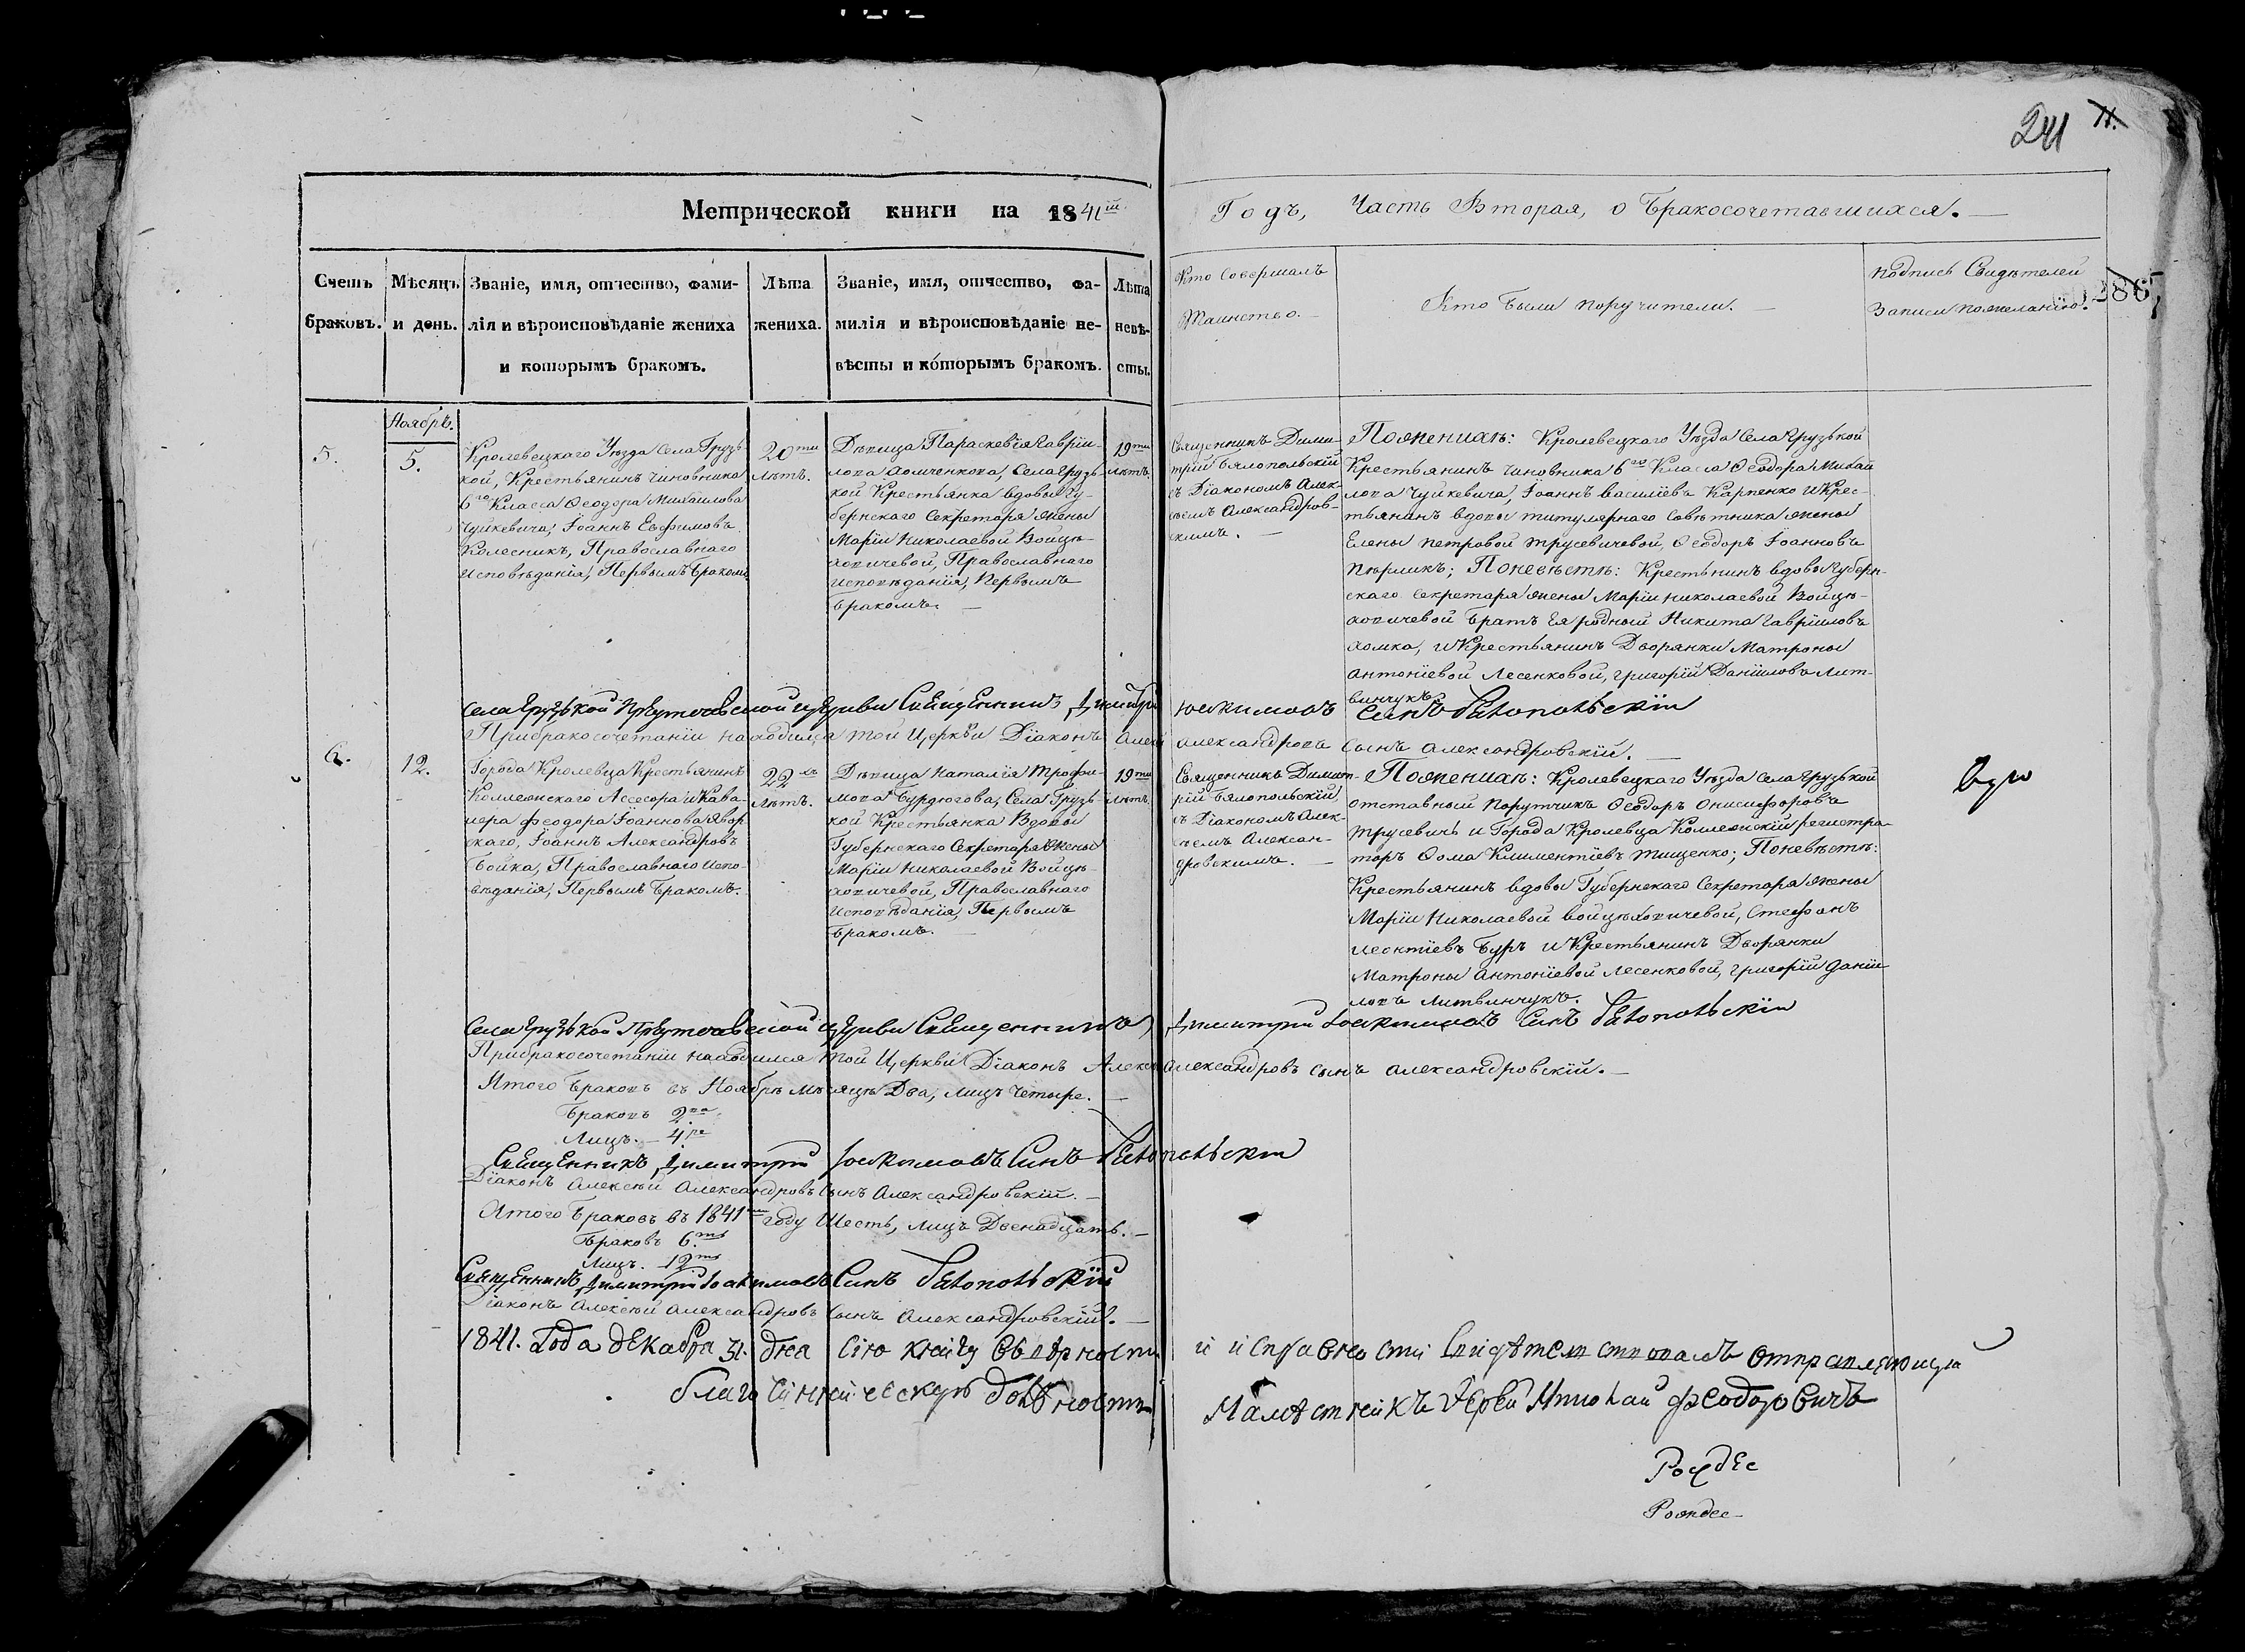 241
Метрической книги на 1841й
Годъ, Часть Вторая, о Бракосочетавшихся.
Счетъ браковъ.
Мѣсяцъ и день.
Званіе, имя, отчество, фами-
лія и вѣроисповѣданіе жениха
и которымъ бракомъ.
Лѣта
жениха.
Званіе, имя, отчество, фа-
милія и вѣроисповѣданіе не-
вѣсты и которымъ бракомъ.
Лѣта
невѣ-
сты.
Кто Совершалъ
Таинство.
Кто были поручители.
подпись Свидѣтелей
Записи пожеланію.
286
Ноябрь.
5.
5.
Кролевецкаго Уѣзда Села Грузь-
кой, Крестьянинъ Чиновника
6го Класса Ѳеодора Михайлова
Чуйкевича, Іоаннъ Евфимовъ
Колесникъ, Православнаго
Исповѣданія, Первымъ Бракомъ
20ти
лѣтъ.
Дѣвица Параскевія Гавріи-
лова Хомченкова, Села Грузь-
кой Крестьянка вдовы Гу-
бернскаго Секретаря жены
Маріи Николаевой Войцѣ-
ховичевой, Православнаго
Исповѣданія, Первымъ
Бракомъ.
19ти
лѣтъ.
Священникъ Дими-
трій Бялопольскій
съ Діакономъ Алек-
сѣемъ Александров-
скимъ.
Пожениху: Кролевецкаго Уѣзда Села Грузькой
Крестьянинъ Чиновника 6го Класса Ѳеодора Михай-
лова Чуйкевича, Іоаннъ Василіевъ Карпенко и Крес-
тьянинъ вдовы титулярнаго Совѣтника жены
Елены Петровой Трусевичевой, Ѳеодоръ Іоанновъ
Пырликъ; Поневѣстѣ: Крестьнинъ вдовы Губерн-
скаго Секретаря жены Маріи Николаевой Войцѣ-
ховичевой Братъ Ея родный Никита Гавріиловъ
Хомка, и Крестьянинъ Дворянки Матроны
Антоніевой Лесенковой, Григорій Даніиловъ Лит-
винчукъ.
Села Грузькой Церкви Священникъ Димитрій Іоакимовъ Синъ Бялопольскій
Прибракосочетаніи находился той Церкви Діаконъ Алексѣй Александровъ Сынъ Александровскій.
6.
12.
Города Кролевца Крестьянинъ
Коллежскаго Ассесора и Кава-
лера Феодора Іоаннова Явор-
скаго, Іоаннъ Александровъ
Бойка, Православнаго Испо-
вѣданія, Первымъ Бракомъ.
22хъ
лѣтъ.
Дѣвица Наталія Трофи-
мова Бурдюгова, Села Грузь-
кой Крестьянка Вдовы
Губернскаго Секретаря Жены
Маріи Николаевой Войцѣ-
ховичевой, Православнаго
Исповѣданія, Первымъ
Бракомъ.
19ти
лѣтъ.
Священникъ Димит-
рій Бялопольскій,
съ Діакономъ Алек-
сѣемъ Алексан-
дровскимъ.
Пожениху: Кролевецкаго Уѣзда Села Грузькой
отставный Порутчикъ Ѳеодоръ Онисифоровъ
Трусевичъ и Города Кролевца Коллежскій регистра-
торъ Ѳома Климентіевъ Тищенко; Поневѣстѣ:
Крестьянинъ вдовы Губернскаго Секретаря жены
Маріи Николаевой Войцѣховичевой, Стефанъ
Леонтіевъ Буръ и Крестьянинъ Дворянки
Матроны Антоніевой Лесенковой, Григорій Даніи-
ловъ Литвинчукъ.
Села Грузькой Церкви Священникъ Димитрій Іоакимовъ Синъ Бялопольскій
Прибракосочетаніи находился той Церкви Діаконъ Алексѣй Александровъ Сынъ Александровскій.
Итого Браковъ въ Ноябрѣ мѣсяцѣ Два, лицъ Четыре.
Браковъ 2ва
Лицъ. 4ре
Священникъ Димитрій Іоакимовъ Синъ Бялопольскій
Діаконъ Алексѣй Александровъ Сынъ Александровскій.
Итого Браковъ въ 1841мъ году Шесть, лицъ Двенадцать.
Браковъ 6ть
Лицъ. 12ть
Священникъ Димитрій Іоакимовъ Синъ Бялопольскій
Діаконъ Алексѣй Александровъ Сынъ Александровскій.
1841. Года декабря 31. дня сію книгу въ вѣрности и исправности свидѣтелствовалъ отправляющій
благочинническую должность Намѣстникъ Іерей Михаил Феодоровичъ
Рождес
Рождес